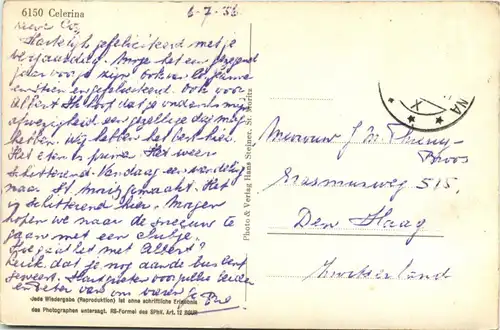 6150 Celerina
6-7-'56
Hartelijk gefeliciteerd met je
verjaardag. Moge het een gezegend
jaar voor je zijn ook van
en gefeliciteerd. Ook voor
Albert. Ik hoop dat je ondanks mijn
afwezigheid een gezellige dag mag
hebben. Wij hebben het best hier.
Het eten is prima. Het weer
schitterend. Vandaag een wandeling
naar St. Moritz gemaakt. Het
is schitterend hier. Morgen
hopen we naar de sneeuw te
gaan met een clubje.
Hoe gaat het met Albert?
Leuk dat je nog aan de bus bent
geweest. Hartelijke groeten voor jullie beiden
en van ons
Jede Wiedergabe (Reproduktion) ist ohne schriftliche Erlaubnis
des Photographen untersagt. RS-Formel des SPhV, Art. 12 SGUR
Photo & Verlag Hans Steiner, St. Moritz
NA
X
Mevrouw J. M.
Broos
Erasmusweg 515.
Den Haag